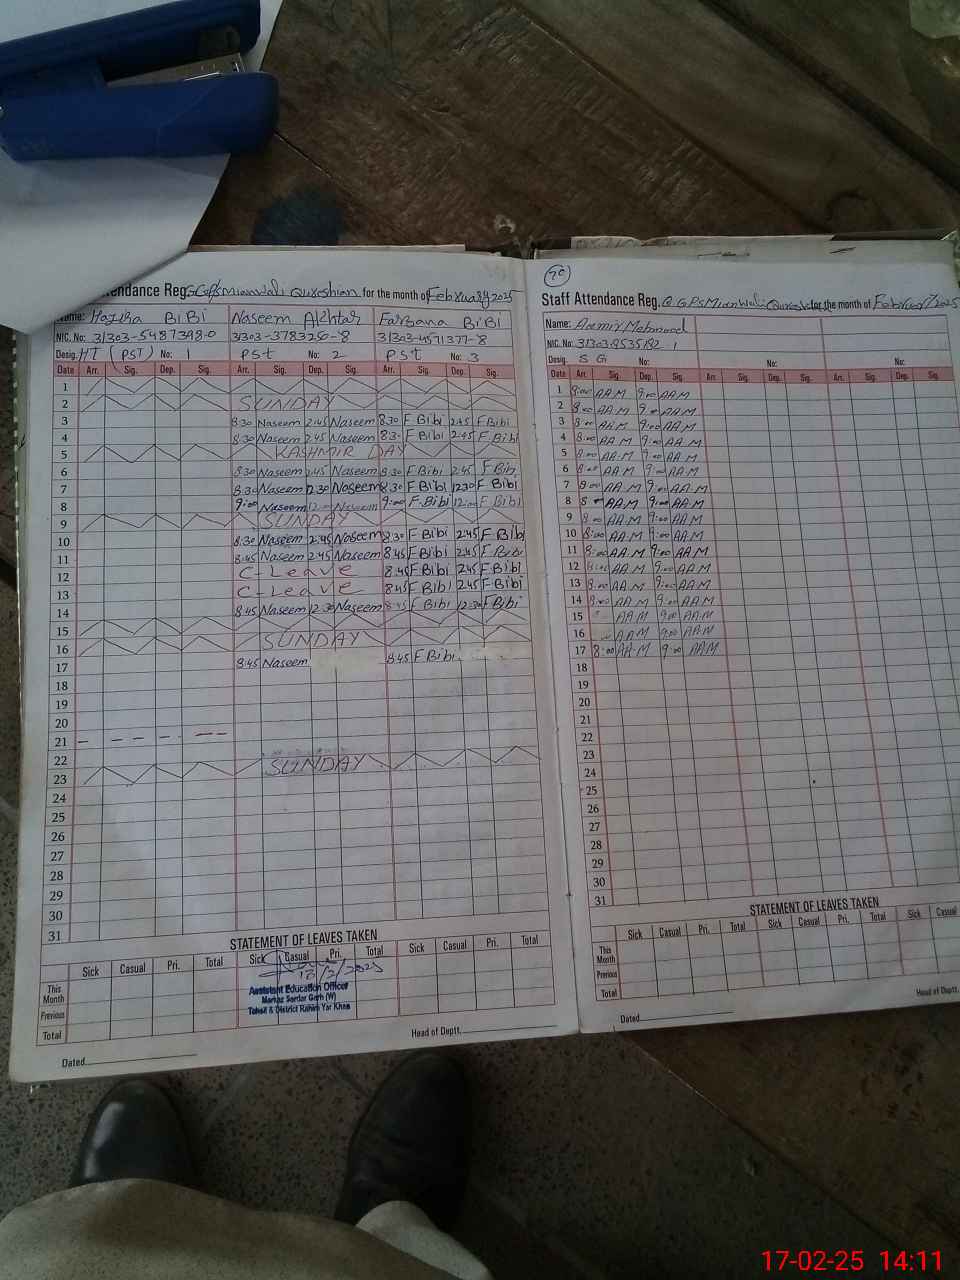 Attendance Reg. GGPS Mianwali Qureshian for the month of February 2025
Name: Hazira BiBi Naseem Akhtar Farzana BiBi
NIC. No: 31303-5487398-0 31303-3783250-8 31303-4571377-8
Desig. HT (PST) No: 1 PSt No: 2 PSt No: 3
Date Arr. Sig. Dep. Sig. Arr. Sig. Dep. Sig. Arr. Sig. Dep. Sig.
1
2 SUNDAY
3 8:30 Naseem 2:45 Naseem 8:30 F Bibi 2:45 F Bibi
4 8:30 Naseem 2:45 Naseem 8:30 F Bibi 2:45 F Bibi
5 KASHMIR DAY
6 8:30 Naseem 2:45 Naseem 8:30 F Bibi 2:45 F Bibi
7 8:30 Naseem 12:30 Naseem 8:30 F Bibi 12:30 F Bibi
8 9:00 Naseem 12:00 Naseem 9:00 F Bibi 12:00 F Bibi
9 SUNDAY
10 8:30 Naseem 2:45 Naseem 8:30 F Bibi 2:45 F Bibi
11 8:45 Naseem 2:45 Naseem 8:45 F Bibi 2:45 F Bibi
12 C-Leave 8:45 F Bibi 2:45 F Bibi
13 C-Leave 8:45 F Bibi 2:45 F Bibi
14 8:45 Naseem 12:30 Naseem 8:45 F Bibi 12:30 F Bibi
15
16 SUNDAY
17 8:45 Naseem 8:45 F Bibi
18
19
20
21
22
23 SUNDAY
24
25
26
27
28
29
30
31
STATEMENT OF LEAVES TAKEN
Sick Casual Pri. Total Sick Casual Pri. Total Sick Casual Pri. Total
This Month
Previous
Total
10/2/2025
Assistant Education Officer
Markaz Sardar Garh (W)
Tehsil & District Rahim Yar Khan
Head of Deptt.
Dated
Staff Attendance Reg. @ GPS Mianwali for the month of February 2025
Name: Aamir Mehmood
NIC. No:
Desig. S G No: No: No:
Date Arr. Sig. Dep. Sig. Arr. Sig. Dep. Sig. Arr. Sig. Dep. Sig.
1 8:00 AA.M 9:00 AA.M
2 8:00 AA.M 9:00 AA.M
3 8:00 AA.M 9:00 AA.M
4 8:00 AA.M 9:00 AA.M
5 8:00 AA.M 9:00 AA.M
6 8:00 AA.M 9:00 AA.M
7 8:00 AA.M 9:00 AA.M
8 AA.M 9:00 AA.M
9 8:00 AA.M 9:00 AA.M
10 8:00 AA.M 9:00 AA.M
11 8:00 AA.M 9:00 AA.M
12 8:00 AA.M 9:00 AA.M
13 8:00 AA.M 9:00 AA.M
14 8:00 AA.M 9:00 AA.M
15 AA.M 9:00 AA.M
16 AA.M 9:00 AA.M
17 8:00 AA.M 9:00 AA.M
18
19
20
21
22
23
24
25
26
27
28
29
30
31
STATEMENT OF LEAVES TAKEN
Sick Casual Pri. Total Sick Casual Pri. Total Sick Casual
This Month
Previous
Total
Head of Deptt.
Dated
17-02-25 14:11